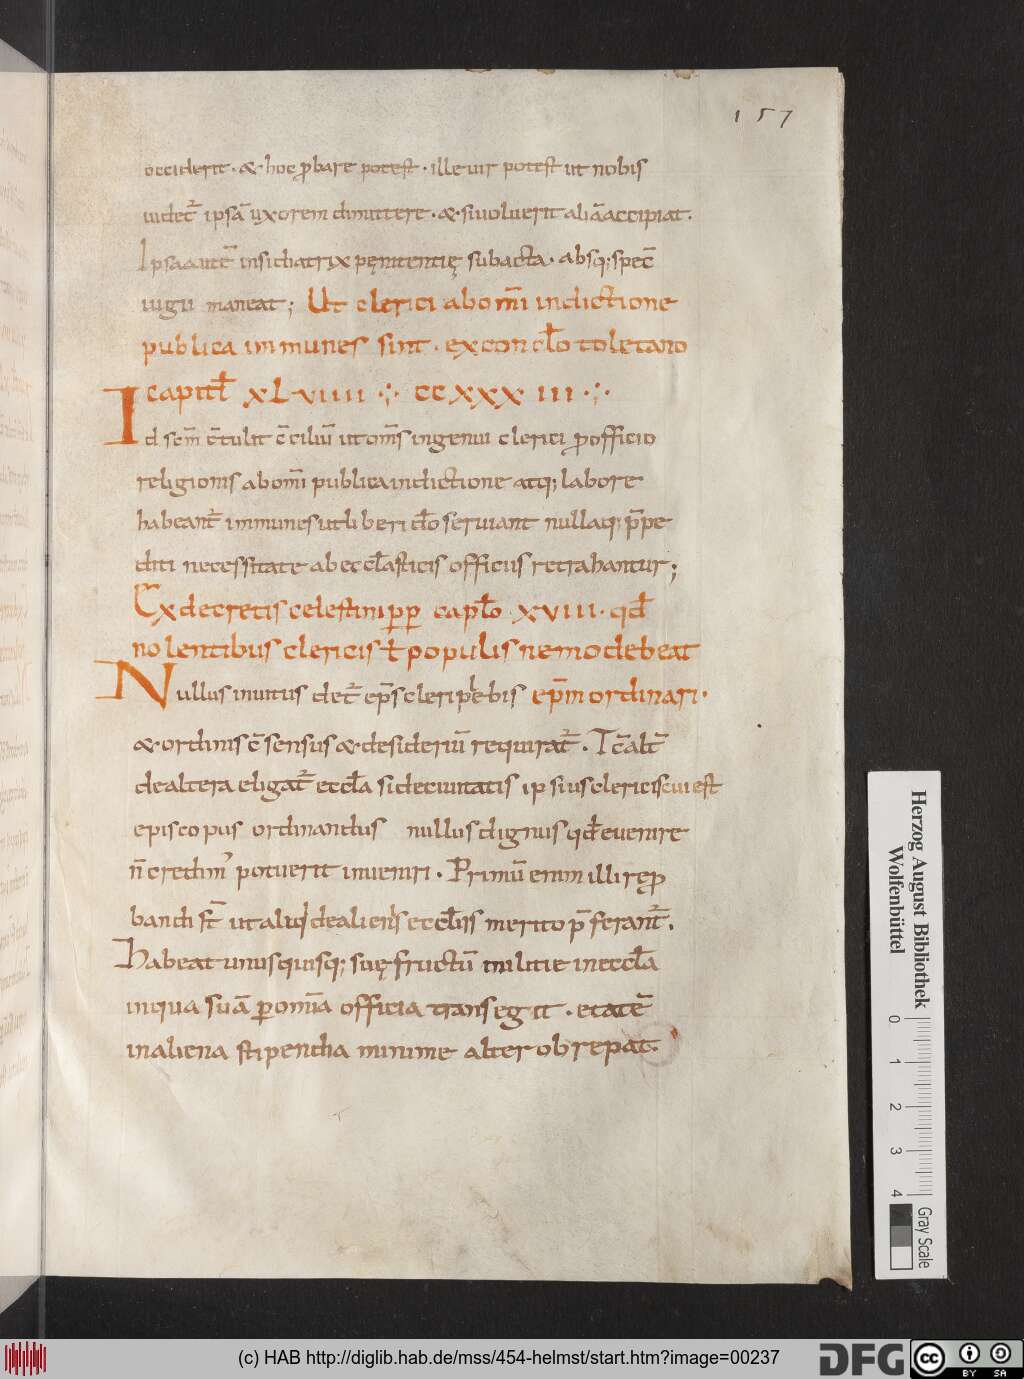 157
occiderit · & hoc ꝓbare potest · ille uir potest ut nobis
uidet᷑ ipsā uxorem dimittere · & si uoluerit aliā accipiat.
Ipsa autē insidiatrix pęnitentię subacta · absq; spec̄
iugii maneat; Ut clerici ab om̄i indictione
publica immunes sint · ex concɫo toletano
capitɫ XLVIIII ·:· CCXXXIII ·:·
Id sc̄m c̄tulit c̄ciliū ut om̄s ingenui clerici ꝓ officio
religionis ab om̄i publica indictione atq; labore
habeant᷑ immunes ut liberi dō seruiant nullaq; p̄pe
diti necessitate ab eccɫasticis officiis retrahantur;
Ex decretis celestini pp capɫo XVIII · qđ
nolentibus clericis ɫ populis nemo debeat
Nullus inuitus det᷑ ep̄s cleri plebis ep̄m ordinari ·
& ordinis c̄sensus & desideriū requirat᷑ · Tc̄ alt̄
de altera eligat᷑ eccɫa si de ciuitatis ipsius clericis cui est
episcopus ordinandus nullus dignus qđ euenire
n̄ credim᷒ potuerit inueniri · Primū enim illi reꝓ
bandi sт̄ ut aliqi de alienis eccɫiis merito p̄ferant᷑.
Habeat unusquisq; suę fructū militie in eccɫa
in qua suā ꝑ om̄ia officia transegit · etatē
in aliena stipendia minime alter obrepat.
Herzog August Bibliothek
Wolfenbüttel
0 1 2 3 4
Gray Scale
(c) HAB http://diglib.hab.de/mss/454-helmst/start.htm?image=00237
DFG
cc BY SA